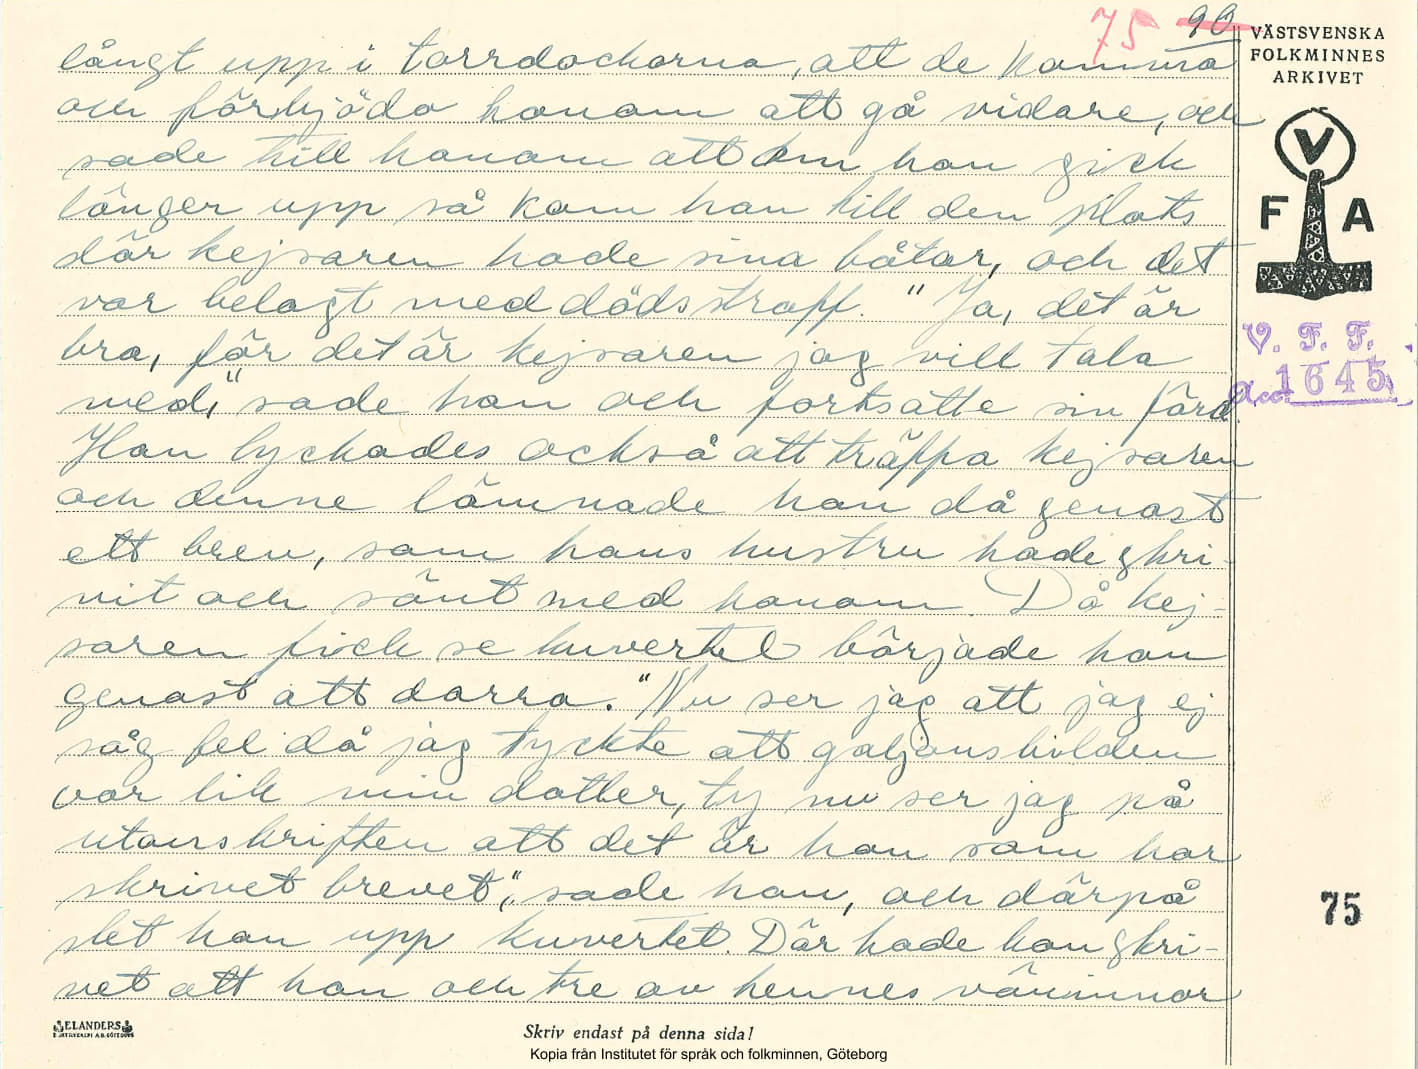 75 90
VÄSTSVENSKA
FOLKMINNES
ARKIVET
V
F A
V. F. F.
Acc. 1645
långt upp i torrdockorna, att de komma
och förbjöda honom att gå vidare, och
sade till honom att om han gick
länger upp så kom han till den plats
där kejsaren hade sina båtar, och det
var belagt med dödsstraff. "Ja, det är
bra, för det är kejsaren jag vill tala
med," sade han och fortsatte sin färd.
Han lyckades också att träffa kejsaren
och denne lämnade han då genast
ett brev, som hans hustru hade skri-
vit och sänt med honom. Då kej-
saren fick se kuvertet började han
genast att darra. "Nu ser jag att jag ej
såg fel då jag tyckte att galjonsbilden
var lik min dotter, ty nu ser jag på
utanskriften att det är hon som har
skrivet brevet," sade han, och därpå
slet han upp kuvertet. Där hade hon skri-
vet att hon och tre av hennes väninnor
75
ELANDERS
Skriv endast på denna sida!
Kopia från Institutet för språk och folkminnen, Göteborg